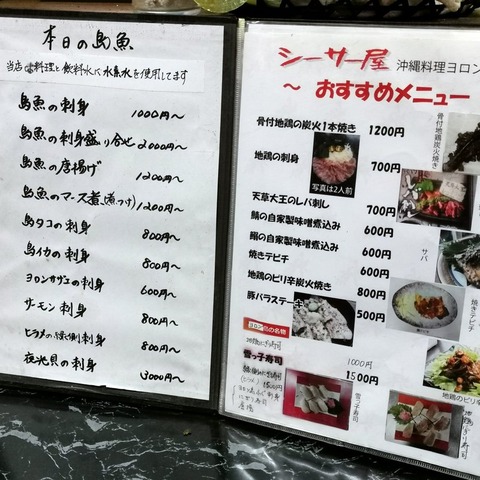 本日の島魚
当店は料理と飲料水に水素水を使用してます
島魚の刺身 1000円〜
島魚の刺身盛り合せ 2000円〜
島魚の唐揚げ 1200円〜
島魚のマース煮(煮つけ) 1200円〜
島タコの刺身 800円〜
島イカの刺身 800円〜
ヨロンガザエの刺身 600円〜
サーモン刺身 800円〜
ヒラメの刺身 800円〜
夜光貝の刺身 3000円〜
シーサー屋 沖縄料理ヨロン
〜 おすすめメニュー
骨付地鶏の炭火1本焼き 1200円
地鶏の刺身 700円
写真は2人前
天草大王のレバ刺し 700円
鯖の自家製味噌煮込み 600円
鰯の自家製味噌煮込み 600円
焼きテビチ 600円
地鶏のピリ辛炭火焼き 800円
豚バラステーキ 500円
の名物
雪っ子寿司 1500円
1000円
骨付地鶏炭火焼き
サバ
焼きテビチ
地鶏のピリ辛
雪っ子寿司